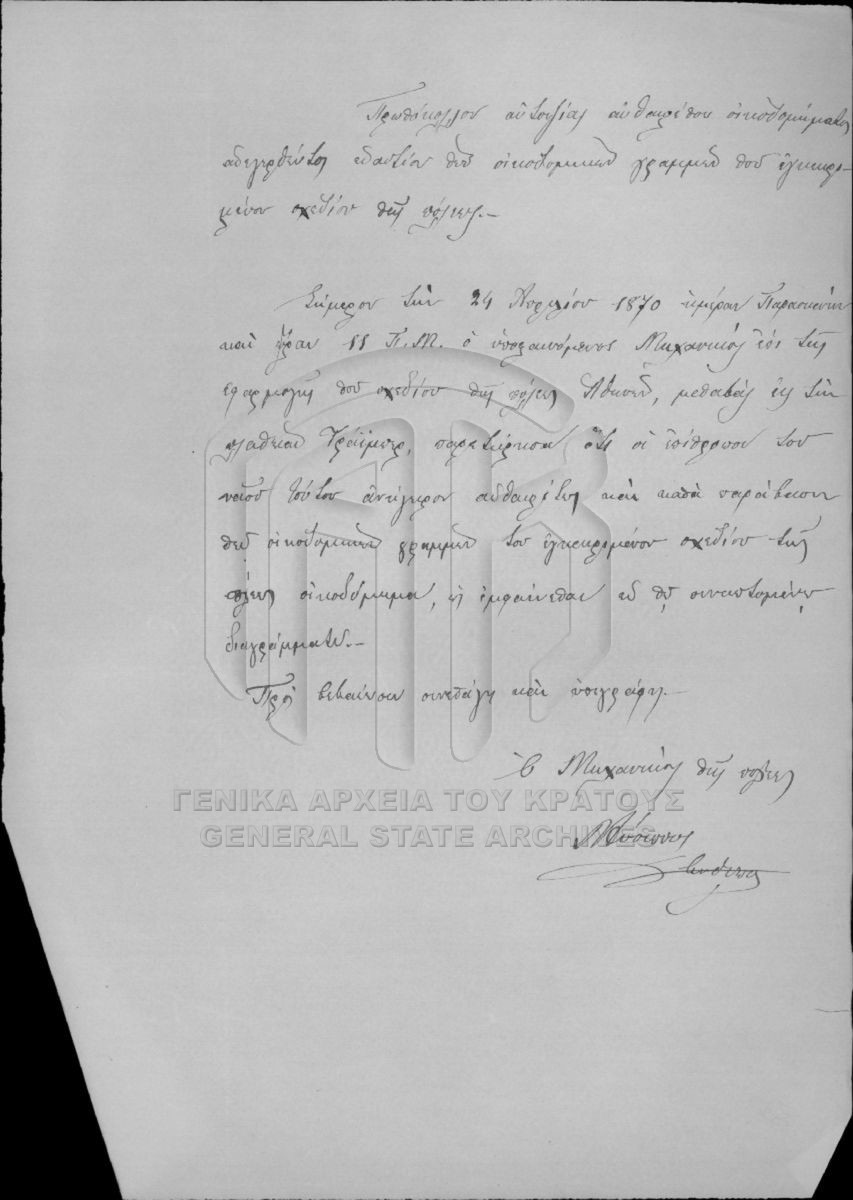 Πρωτόκολλον αὐτοψίας αὐθαιρέτου οἰκοδομήματος
ἀνεγερθέντος ἐναντίον τῶν οἰκοδομικῶν γραμμῶν τοῦ ἐγκεκρι-
μένου σχεδίου τῆς πόλεως.-
Σήμερον τὴν 24 Ἀπριλίου 1870 ἡμέραν Παρασκευὴν
καὶ ὥραν 11 Π.Μ. ὁ ὑποφαινόμενος Μηχανικὸς ἐπὶ τῆς
ἐφαρμογῆς τοῦ σχεδίου τῆς πόλεως Ἀθηνῶν, μεταβὰς εἰς τὴν
πλατεῖαν, παρετήρησα ὅτι οἱ ἐπίτροποι τοῦ
ναοῦ τούτου ἀνήγειρον αὐθαιρέτως καὶ κατὰ παράβασιν
τῶν οἰκοδομικῶν γραμμῶν τοῦ ἐγκεκριμένου σχεδίου τῆς
πόλεως οἰκοδόμημα, ὡς ἐμφαίνεται ἐν τῷ συναπτομένῳ
διαγράμματι.-
Πρὸς βεβαίωσιν συνετάγη καὶ ὑπεγράφη.-
Ὁ Μηχανικὸς τῆς πόλεως
ΓΕΝΙΚΑ ΑΡΧΕΙΑ ΤΟΥ ΚΡΑΤΟΥΣ
GENERAL STATE ARCHIVES